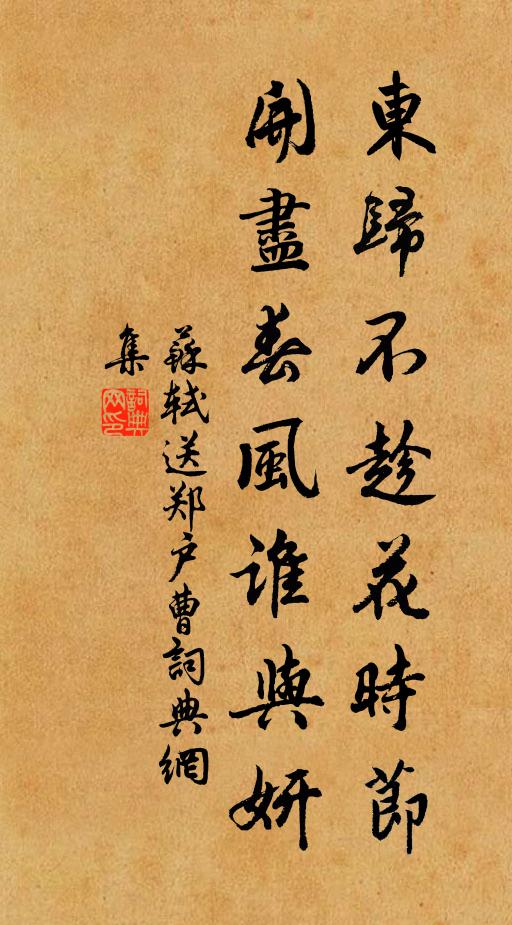 東歸不趁花時節
開盡春風誰與妍
蘇軾送郑户曹詞典網
集
詞典網印